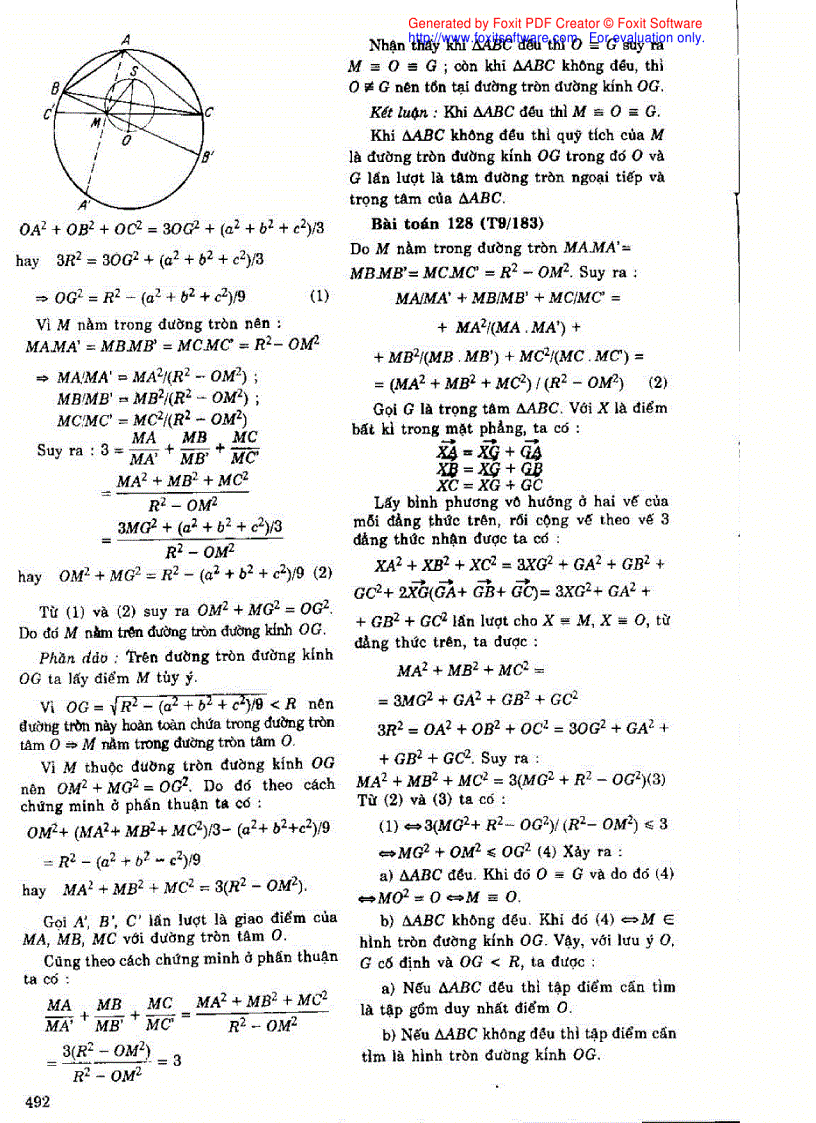 Generated by Foxit PDF Creator © Foxit Software
http://www.foxitsoftware.com For evaluation only.
A
S
B
C'
M
C
O
B'
A'
OA² + OB² + OC² = 3OG² + (a² + b² + c²)/3
hay 3R² = 3OG² + (a² + b² + c²)/3
⇒ OG² = R² – (a² + b² + c²)/9 (1)
Vì M nằm trong đường tròn nên :
MA.MA' = MB.MB' = MC.MC' = R² – OM²
⇒ MA/MA' = MA²/(R² – OM²) ;
MB/MB' = MB²/(R² – OM²) ;
MC/MC' = MC²/(R² – OM²)
Suy ra : 3 = MA/MA' + MB/MB' + MC/MC'
= (MA² + MB² + MC²)/(R² – OM²)
= (3MG² + (a² + b² + c²)/3)/(R² – OM²)
hay OM² + MG² = R² – (a² + b² + c²)/9 (2)
Từ (1) và (2) suy ra OM² + MG² = OG².
Do đó M nằm trên đường tròn đường kính OG.
Phần đảo : Trên đường tròn đường kính
OG ta lấy điểm M tùy ý.
Vì OG = √(R² – (a² + b² + c²)/9) < R nên
đường tròn này hoàn toàn chứa trong đường tròn
tâm O ⇒ M nằm trong đường tròn tâm O.
Vì M thuộc đường tròn đường kính OG
nên OM² + MG² = OG². Do đó theo cách
chứng minh ở phần thuận ta có :
OM² + (MA² + MB² + MC²)/3 – (a² + b² + c²)/9
= R² – (a² + b² – c²)/9
hay MA² + MB² + MC² = 3(R² – OM²).
Gọi A', B', C' lần lượt là giao điểm của
MA, MB, MC với đường tròn tâm O.
Cũng theo cách chứng minh ở phần thuận
ta có :
MA/MA' + MB/MB' + MC/MC' = (MA² + MB² + MC²)/(R² – OM²)
= 3(R² – OM²)/(R² – OM²) = 3
492
Nhận thấy khi ΔABC đều thì O ≡ G suy ra
M ≡ O ≡ G ; còn khi ΔABC không đều, thì
O ≢ G nên tồn tại đường tròn đường kính OG.
Kết luận : Khi ΔABC đều thì M ≡ O ≡ G.
Khi ΔABC không đều thì quỹ tích của M
là đường tròn đường kính OG trong đó O và
G lần lượt là tâm đường tròn ngoại tiếp và
trọng tâm của ΔABC.
Bài toán 128 (T9/183)
Do M nằm trong đường tròn MA.MA' =
MB.MB' = MC.MC' = R² – OM². Suy ra :
MA/MA' + MB/MB' + MC/MC' =
+ MA²/(MA . MA') +
+ MB²/(MB . MB') + MC²/(MC . MC') =
= (MA² + MB² + MC²) / (R² – OM²) (2)
Gọi G là trọng tâm ΔABC. Với X là điểm
bất kì trong mặt phẳng, ta có :
XA = XG + GA
XB = XG + GB
XC = XG + GC
Lấy bình phương vô hướng ở hai vế của
mỗi đẳng thức trên, rồi cộng vế theo vế 3
đẳng thức nhận được ta có :
XA² + XB² + XC² = 3XG² + GA² + GB² +
GC² + 2XG(GA + GB + GC) = 3XG² + GA² +
+ GB² + GC² lần lượt cho X ≡ M, X ≡ O, từ
đẳng thức trên, ta được :
MA² + MB² + MC² =
= 3MG² + GA² + GB² + GC²
3R² = OA² + OB² + OC² = 3OG² + GA² +
+ GB² + GC². Suy ra :
MA² + MB² + MC² = 3(MG² + R² – OG²)(3)
Từ (2) và (3) ta có :
(1) ⇔ 3(MG² + R² – OG²)/ (R² – OM²) ⩽ 3
⇔ MG² + OM² ⩽ OG² (4) Xảy ra :
a) ΔABC đều. Khi đó O ≡ G và do đó (4)
⇔ MO² = O ⇔ M ≡ O.
b) ΔABC không đều. Khi đó (4) ⇔ M ∈
hình tròn đường kính OG. Vậy, với lưu ý O,
G cố định và OG < R, ta được :
a) Nếu ΔABC đều thì tập điểm cần tìm
là tập gồm duy nhất điểm O.
b) Nếu ΔABC không đều thì tập điểm cần
tìm là hình tròn đường kính OG.